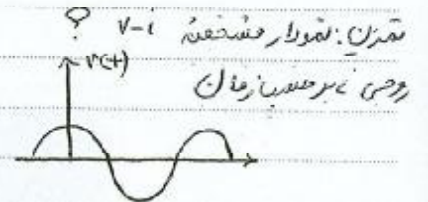 تمرین: نمودار مشخصه v-i ؟
روی نا بر حسب زمان
v(t)